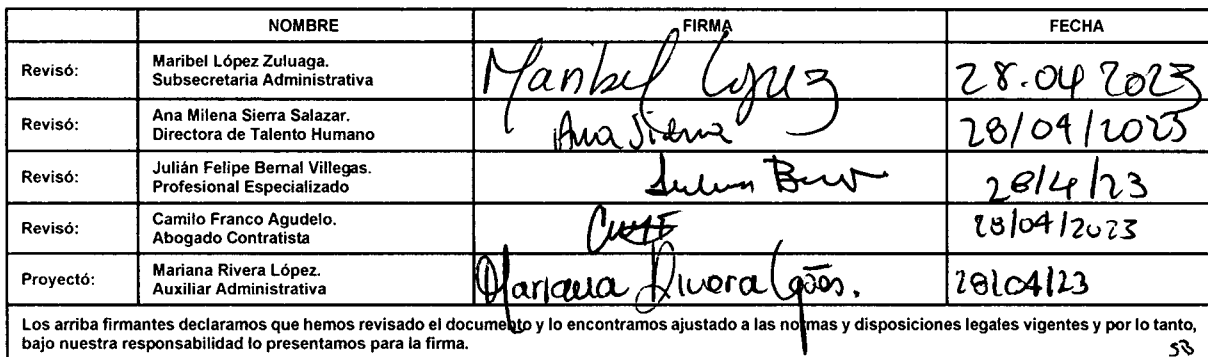 NOMBRE FIRMA FECHA
Revisó: Maribel López Zuluaga.
Subsecretaria Administrativa
Maribel López 28.04 2023
Revisó: Ana Milena Sierra Salazar.
Directora de Talento Humano
Ana Sierra 28/04/2023
Revisó: Julián Felipe Bernal Villegas.
Profesional Especializado
28/4/23
Revisó: Camilo Franco Agudelo.
Abogado Contratista
28/04/2023
Proyectó: Mariana Rivera López.
Auxiliar Administrativa
Mariana Rivera 28/04/23
Los arriba firmantes declaramos que hemos revisado el documento y lo encontramos ajustado a las normas y disposiciones legales vigentes y por lo tanto,
bajo nuestra responsabilidad lo presentamos para la firma.